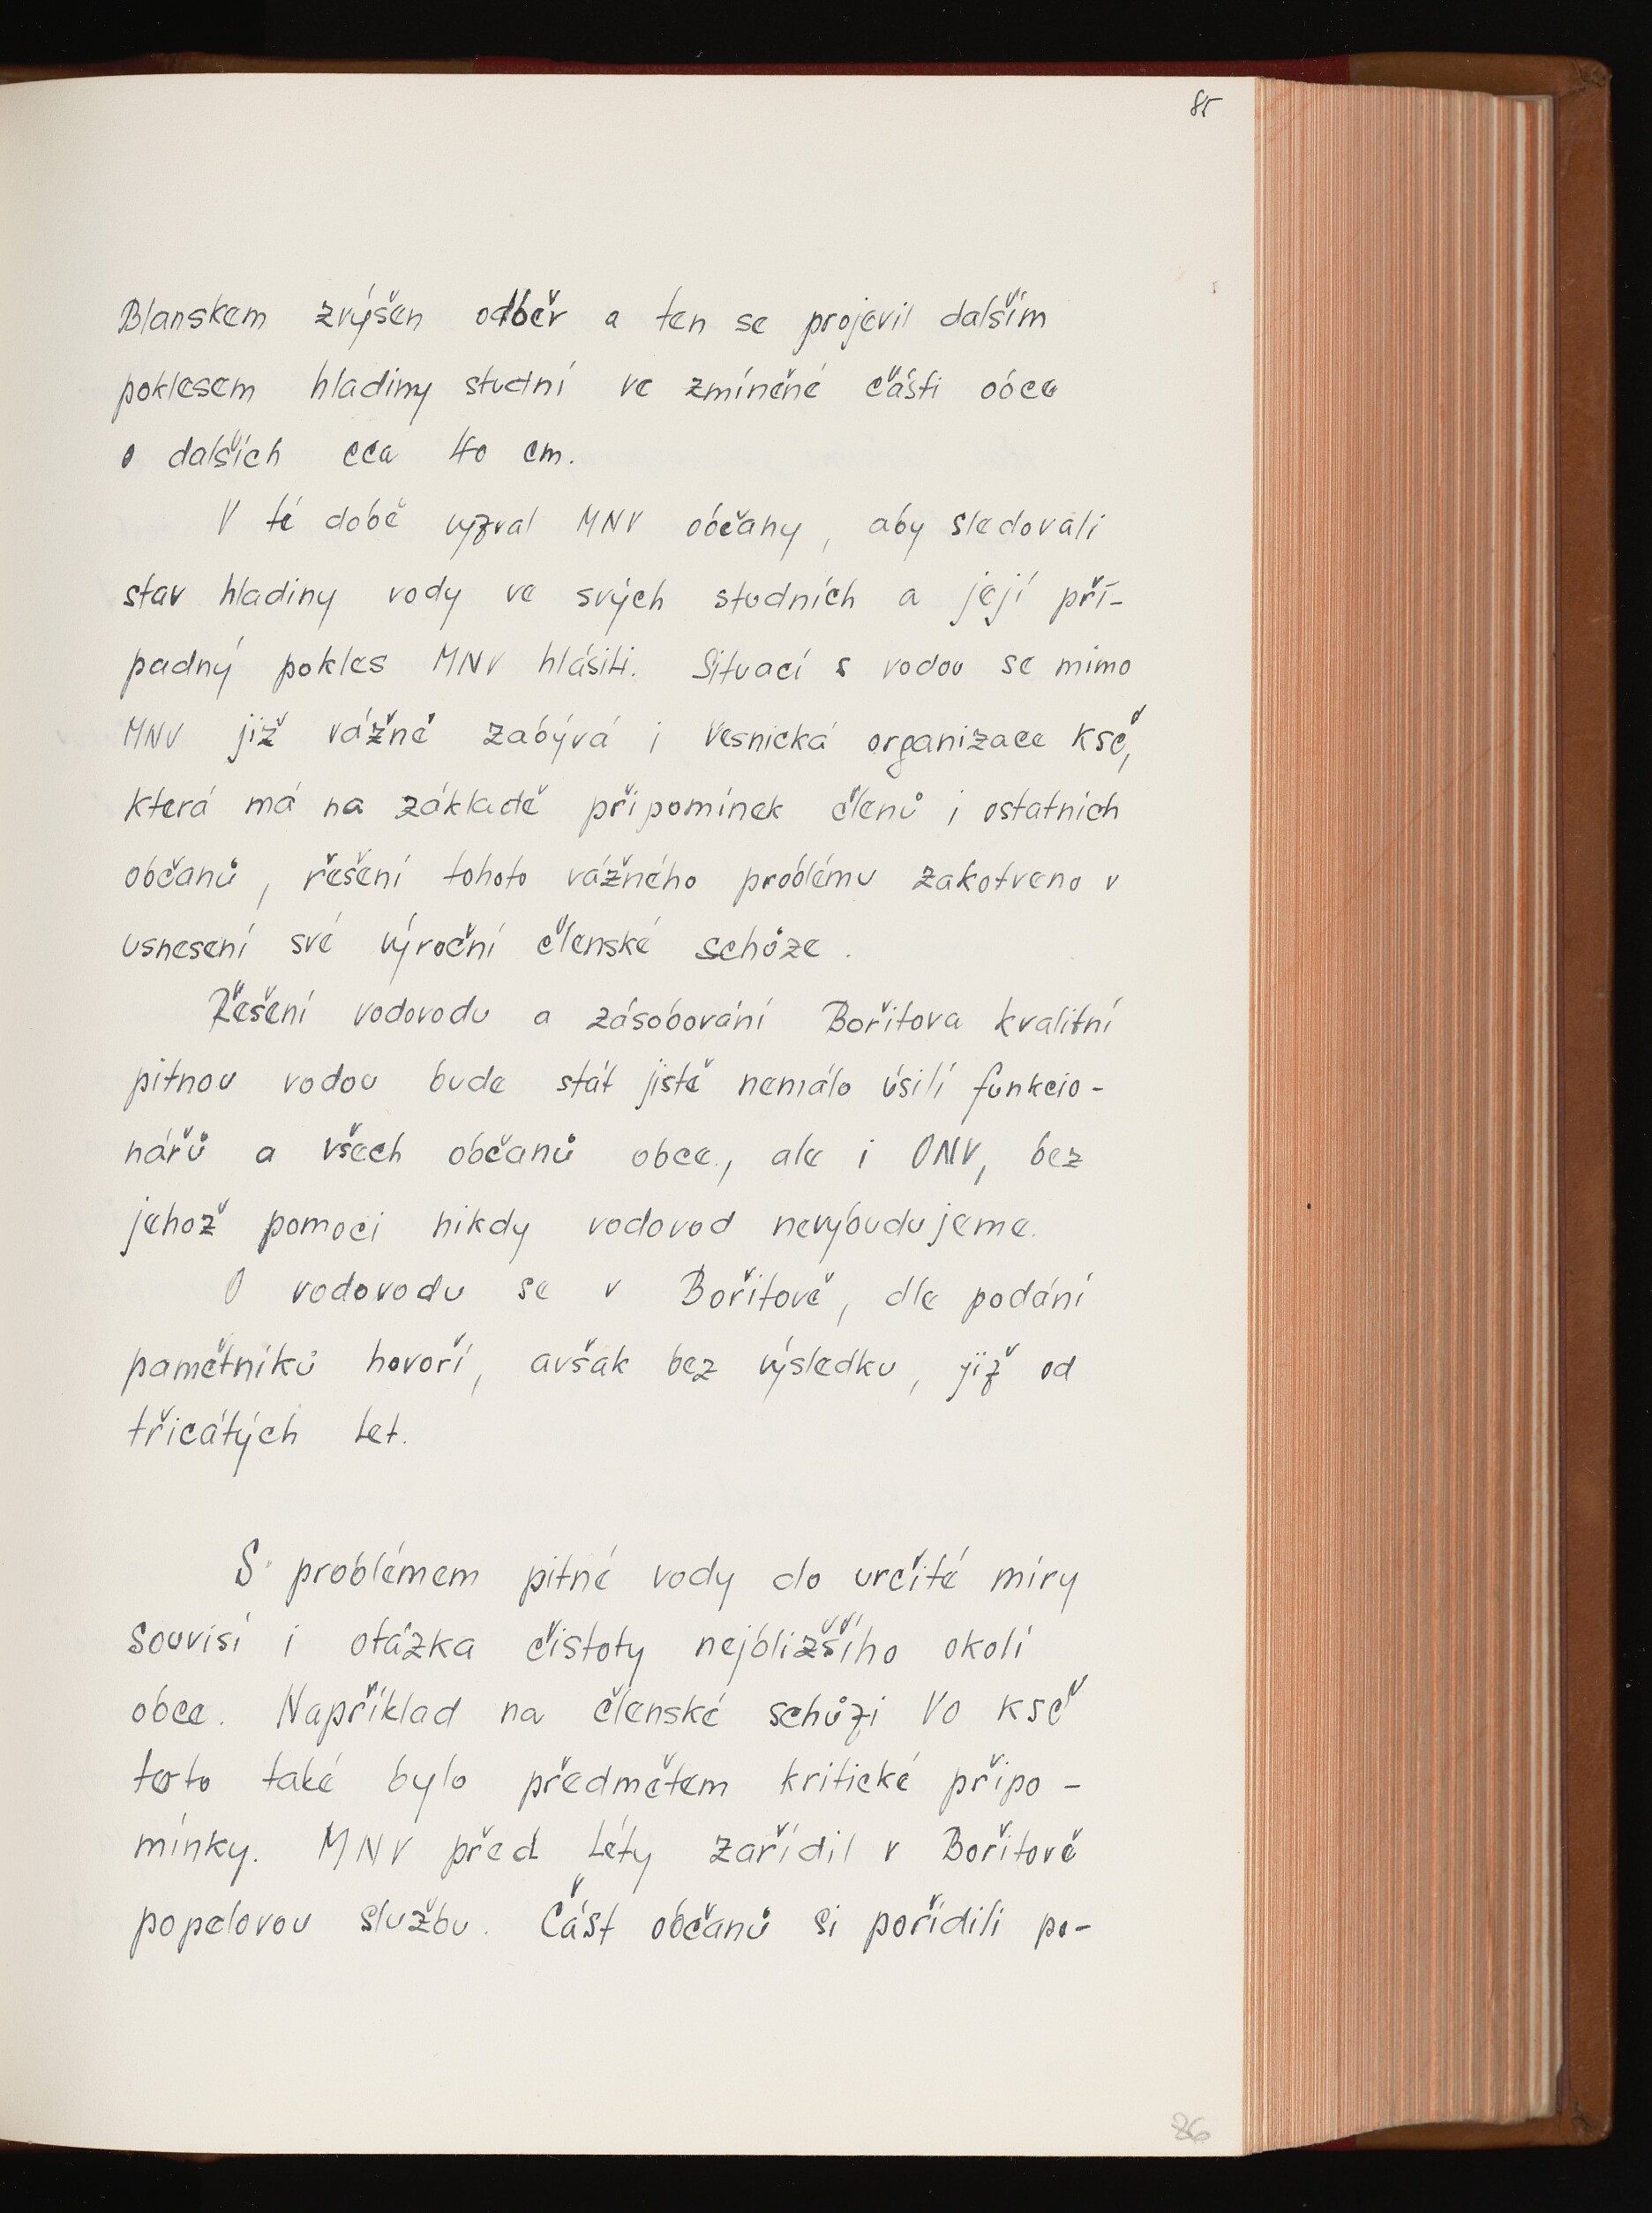 85
Blanskem zvýšen odběr a ten se projevil dalším
poklesem hladiny studní ve zmíněné části obce
o dalších cca 40 cm.
V té době vyzval MNV občany, aby sledovali
stav hladiny vody ve svých studních a její pří-
padný pokles MNV hlásiti. Situací s vodou se mimo
MNV již vážně zabývá i Vesnická organizace KSČ,
která má na základě připomínek členů i ostatních
občanů, řešení tohoto vážného problému zakotveno v
usnesení své výroční členské schůze.
Řešení vodovodu a zásobování Bořitova kvalitní
pitnou vodou bude stát jistě nemálo úsilí funkcio-
nářů a všech občanů obce, ale i ONV, bez
jehož pomoci nikdy vodovod nevybudujeme.
O vodovodu se v Bořitově, dle podání
pamětníků hovoří, avšak bez výsledku, již od
třicátých let.
S problémem pitné vody do určité míry
souvisí i otázka čistoty nejbližšího okolí
obce. Například na členské schůzi VO KSČ
toto také bylo předmětem kritické připo-
mínky. MNV před léty zařídil v Bořitově
popelovou službu. Část občanů si pořídili po-
86